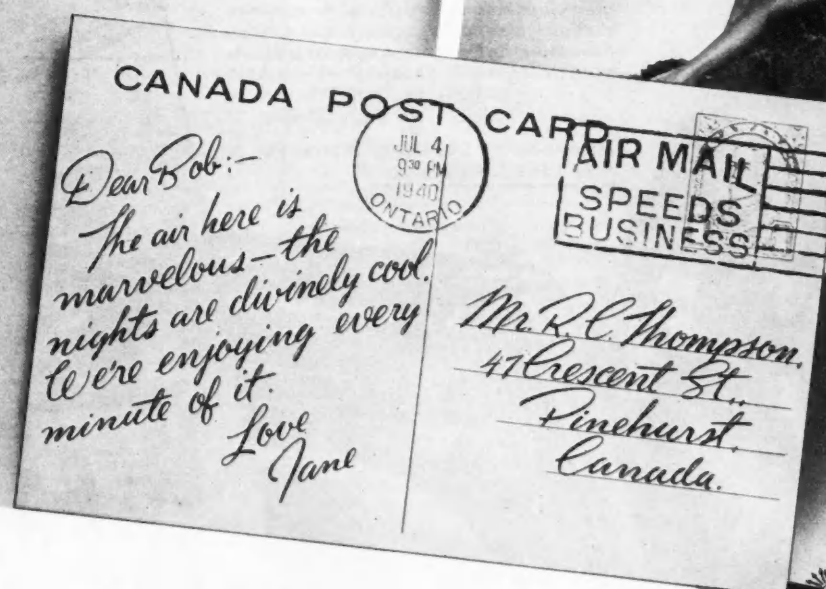 CANADA POST CARD
JUL 4
9 30 PM
1940
ONTARIO
AIR MAIL
SPEEDS
BUSINESS
Dear Bob:-
The air here is
marvelous - the
nights are divinely cool.
We're enjoying every
minute of it.
Love
Jane
Mr. R. C. Thompson.
47 Crescent St.,
Pinehurst.
Canada.